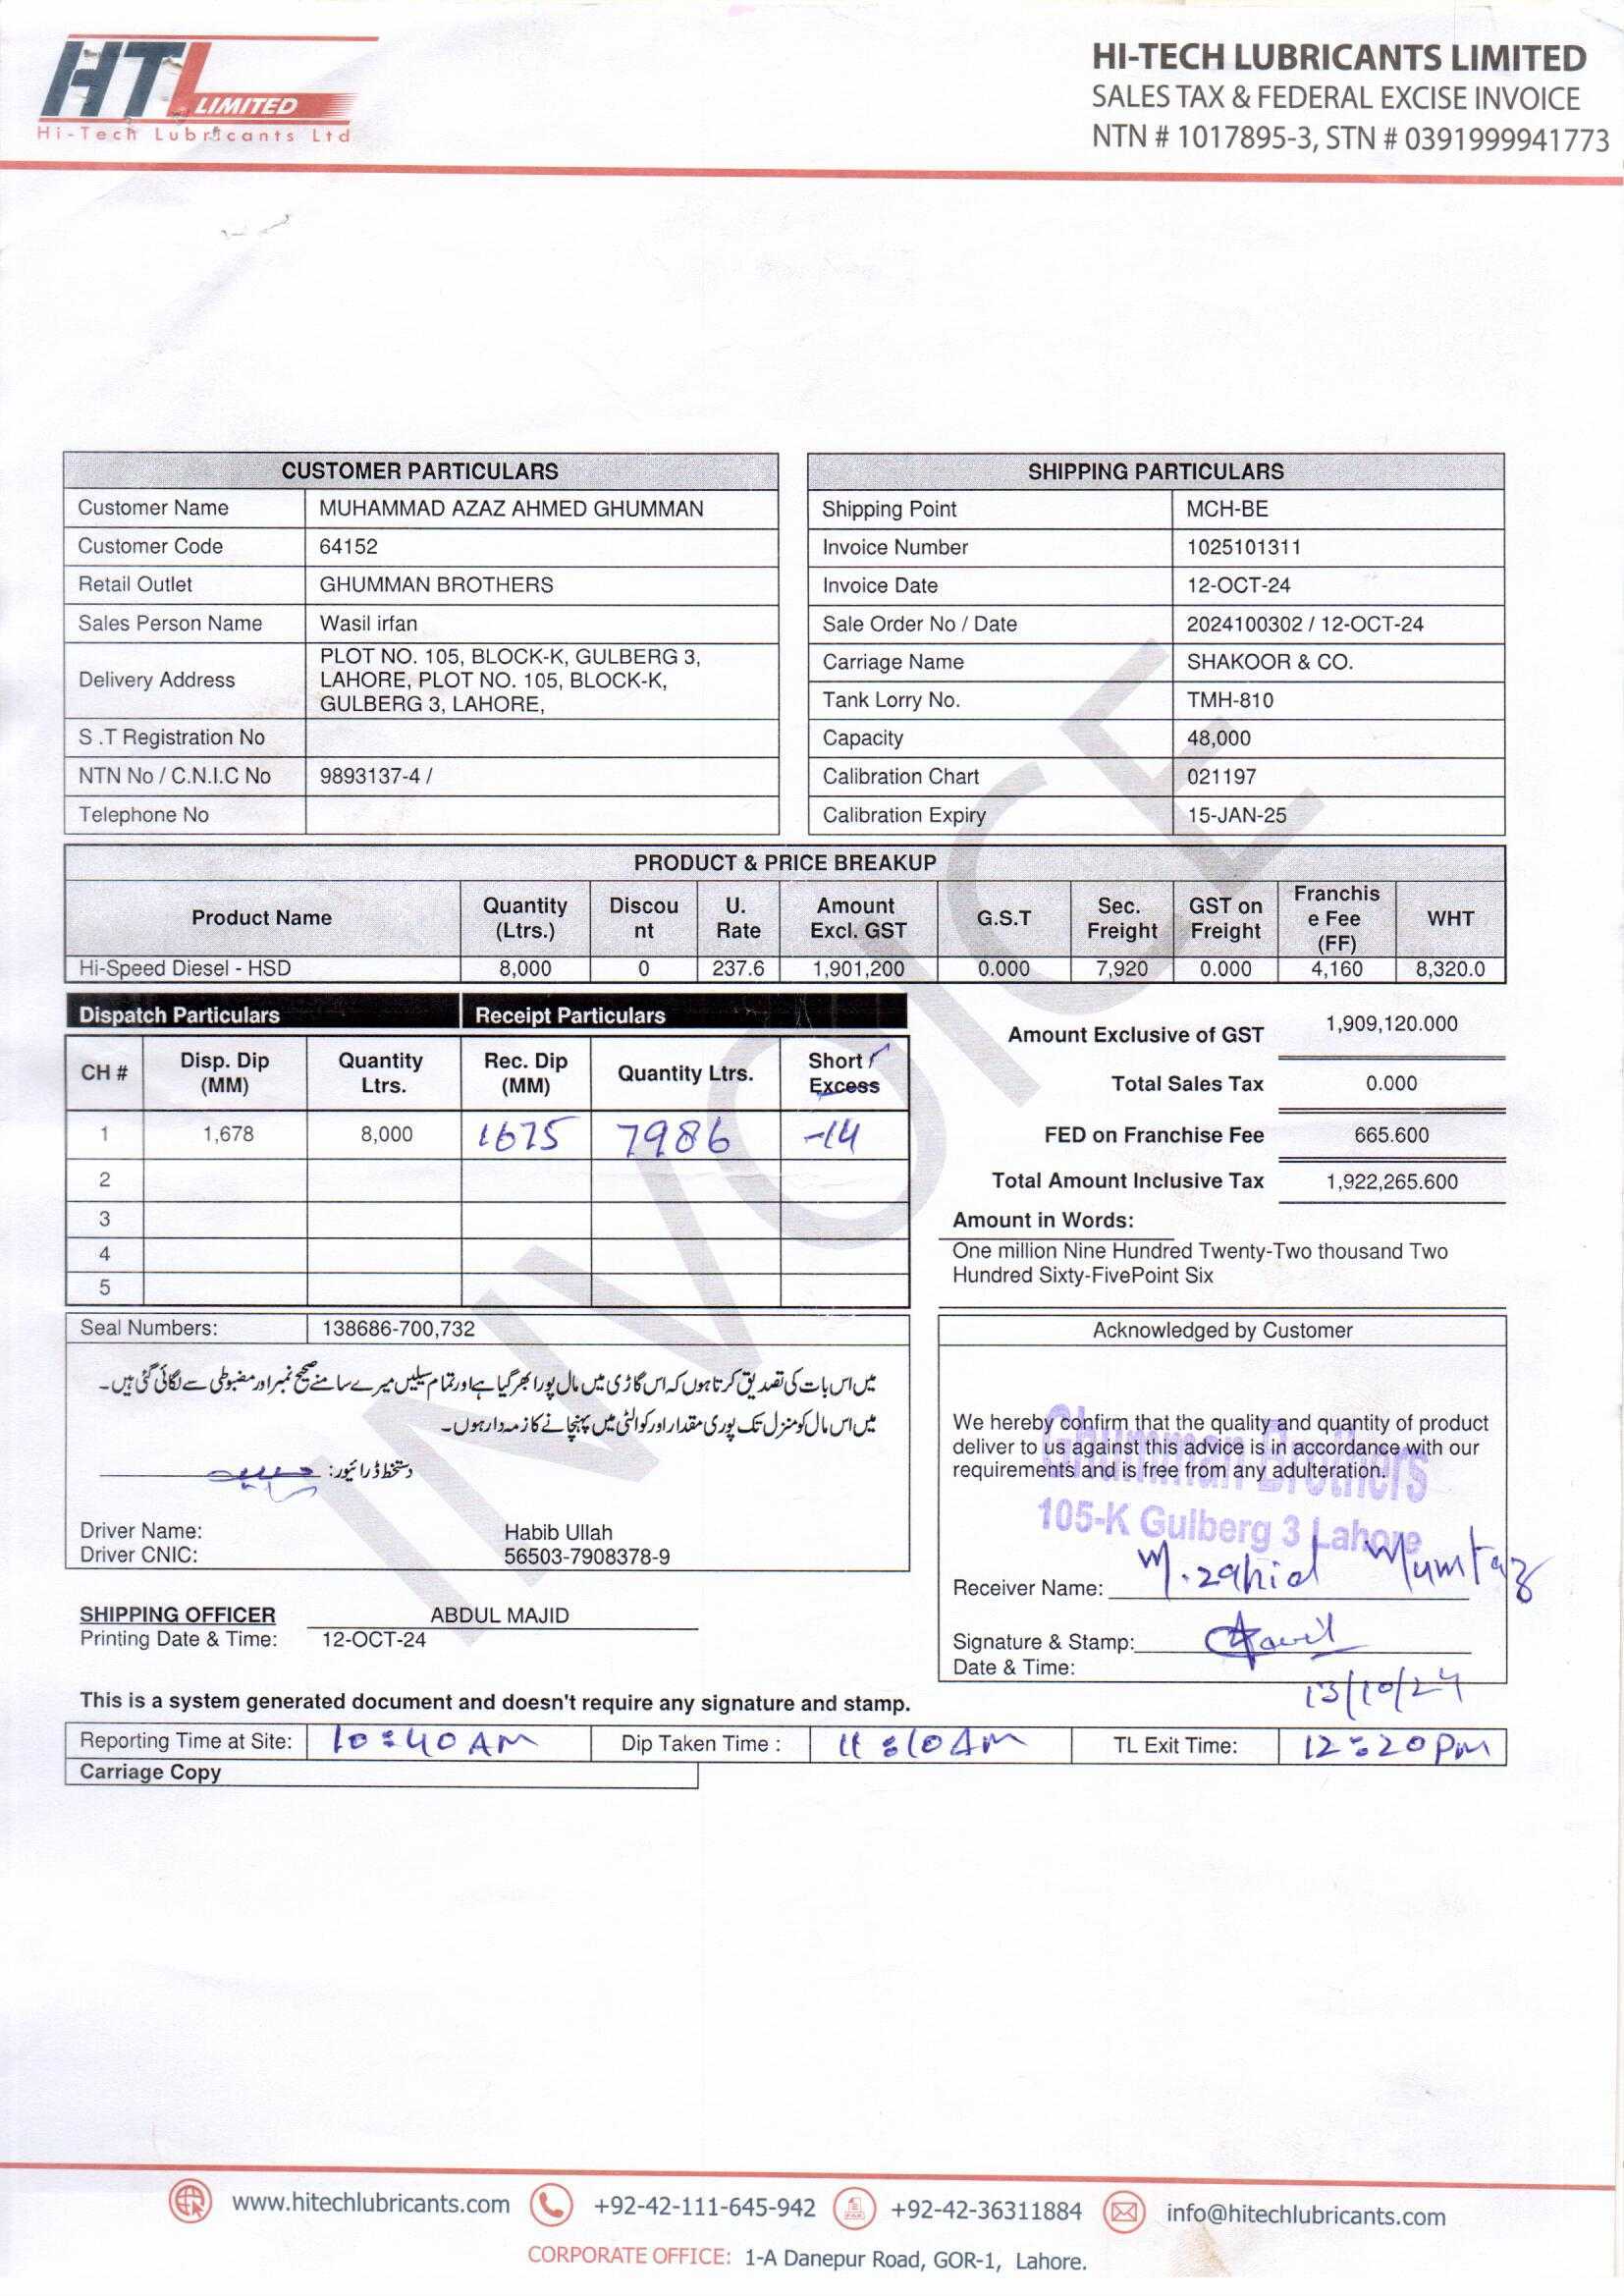 HTL LIMITED
Hi-Tech Lubricants Ltd
HI-TECH LUBRICANTS LIMITED
SALES TAX & FEDERAL EXCISE INVOICE
NTN # 1017895-3, STN # 0391999941773
CUSTOMER PARTICULARS
Customer Name MUHAMMAD AZAZ AHMED GHUMMAN
Customer Code 64152
Retail Outlet GHUMMAN BROTHERS
Sales Person Name Wasil irfan
Delivery Address PLOT NO. 105, BLOCK-K, GULBERG 3,
LAHORE, PLOT NO. 105, BLOCK-K,
GULBERG 3, LAHORE,
S .T Registration No
NTN No / C.N.I.C No 9893137-4 /
Telephone No
SHIPPING PARTICULARS
Shipping Point MCH-BE
Invoice Number 1025101311
Invoice Date 12-OCT-24
Sale Order No / Date 2024100302 / 12-OCT-24
Carriage Name SHAKOOR & CO.
Tank Lorry No. TMH-810
Capacity 48,000
Calibration Chart 021197
Calibration Expiry 15-JAN-25
PRODUCT & PRICE BREAKUP
Product Name Quantity (Ltrs.) Discou nt U. Rate Amount Excl. GST G.S.T Sec. Freight GST on Freight Franchis e Fee (FF) WHT
Hi-Speed Diesel - HSD 8,000 0 237.6 1,901,200 0.000 7,920 0.000 4,160 8,320.0
Dispatch Particulars Receipt Particulars
CH # Disp. Dip (MM) Quantity Ltrs. Rec. Dip (MM) Quantity Ltrs. Short / Excess
1 1,678 8,000 1675 7986 -14
2
3
4
5
Amount Exclusive of GST 1,909,120.000
Total Sales Tax 0.000
FED on Franchise Fee 665.600
Total Amount Inclusive Tax 1,922,265.600
Amount in Words:
One million Nine Hundred Twenty-Two thousand Two
Hundred Sixty-FivePoint Six
Seal Numbers: 138686-700,732
میں اس بات کی تصدیق کرتا ہوں کہ اس گاڑی میں مال پورا بھر گیا ہے اور تمام سیلیں میرے سامنے صحیح نمبر اور مضبوطی سے لگائی گئی ہیں۔
میں اس مال کو منزل تک پوری مقدار اور کوالٹی میں پہنچانے کا زمہ دار ہوں۔
دستخط ڈرائیور:
Driver Name: Habib Ullah
Driver CNIC: 56503-7908378-9
SHIPPING OFFICER ABDUL MAJID
Printing Date & Time: 12-OCT-24
Acknowledged by Customer
We hereby confirm that the quality and quantity of product
deliver to us against this advice is in accordance with our
requirements and is free from any adulteration.
Ghumman Brothers
105-K Gulberg 3 Lahore
Receiver Name: M.zahid Mumtaz
Signature & Stamp:
Date & Time: 13/10/24
This is a system generated document and doesn't require any signature and stamp.
Reporting Time at Site: 10:40 AM Dip Taken Time : 11:10 AM TL Exit Time: 12:20 PM
Carriage Copy
INVOICE
www.hitechlubricants.com +92-42-111-645-942 +92-42-36311884 info@hitechlubricants.com
CORPORATE OFFICE: 1-A Danepur Road, GOR-1, Lahore.